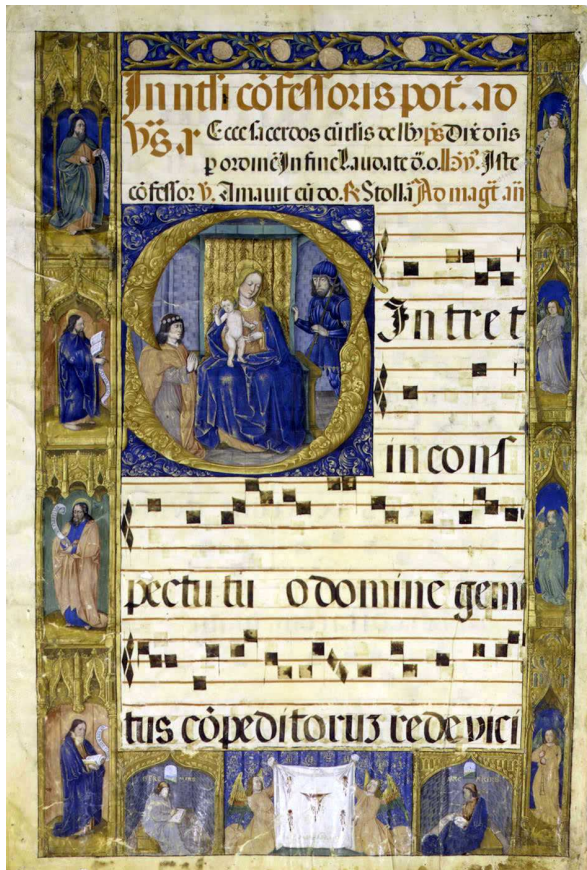 In nt̃li cõfessoris pot̃. ad
v̾s̃. a Ecce sacerdos cũ rlis de lby p̃s Dix̃ dñs
p ordinẽ In fine Laudate d̃. o. Iste
cõfessor V. Amavit eũ do. R Stollã Ad mag̃t añ
Intret
in cons
pectu tu o domine gemi
tus cõpeditoruz redde vici